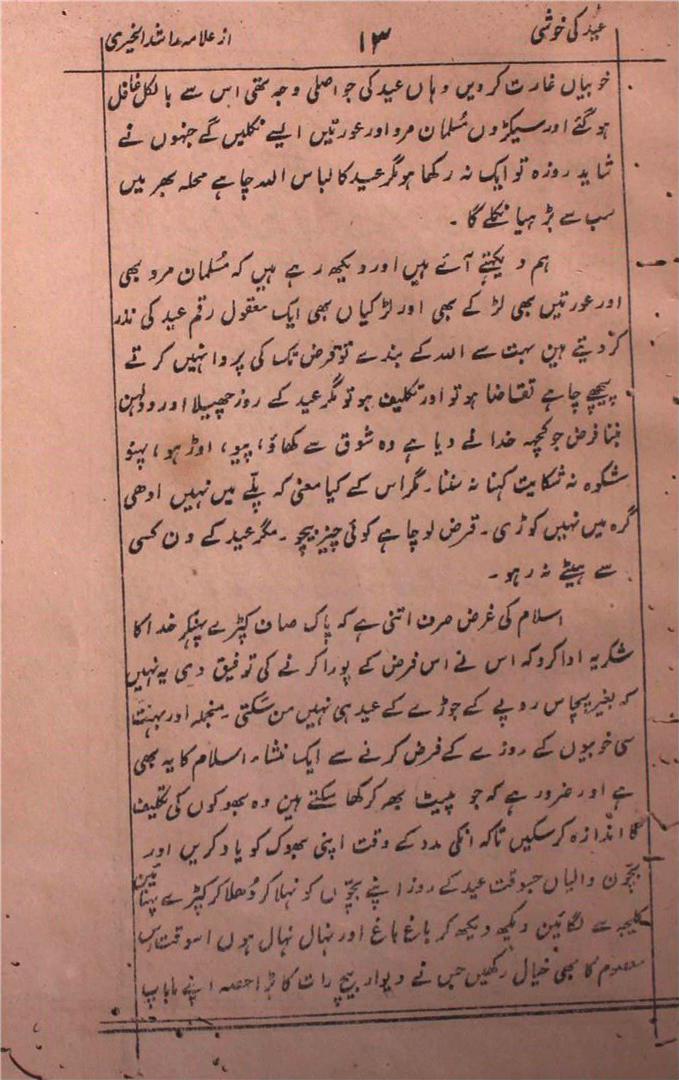 عید کی خوشی ۱۳ از علامہ راشد الخیری
خوبیاں غارت کر دیں وہاں عید کی جو اصلی وجہ تھی اس سے بالکل غافل
ہو گئے اور سیکڑوں مُسلمان مرد اور عورتیں ایسے نکلیں گے جنہوں نے
شاید روزہ تو ایک نہ رکھا ہو مگر عید کا لباس اللہ چاہے محلہ بھر میں
سب سے بڑھیا نکلے گا ۔
ہم دیکھتے آئے ہیں اور دیکھ رہے ہیں کہ مُسلمان مرد بھی
اور عورتیں بھی لڑکے بھی اور لڑکیاں بھی ایک معقول رقم عید کی نذر
کر دیتے ہین بہت سے اللہ کے بندے تو قرض تک کی پروا نہیں کرتے
پیچھے چاہے تقاضا ہو تو اور تکلیف ہو تو مگر عید کے روز چھیلا اور دلہن
بننا فرض جو کچھ خدا نے دیا ہے وہ شوق سے کھاؤ، پیو، اوڑہو، پہنو
شکوہ نہ شکایت کہنا نہ سننا ۔ مگر اس کے کیا معنی کہ پلّے میں نہیں ادھی
گرہ میں نہیں کوڑی ۔ قرض لو چاہے کوئی چیز بیچو ۔ مگر عید کے دن کسی
سے ہیٹے نہ رہو ۔
اسلام کی غرض صرف اتنی ہے کہ پاک صاف کپڑے پہنکر خدا کا
شکریہ ادا کرو کہ اس نے اس فرض کے پورا کرنے کی توفیق دی یہ نہیں
کہ بغیر پچاس روپے کے جوڑے کے عید ہی نہیں من سکتی منجلہ اور بہت
سی خوبیوں کے روزے کے فرض کرنے سے ایک منشاء اسلام کا یہ بھی
ہے اور ضرور ہے کہ جو پیٹ بھر کر کھا سکتے ہین وہ بھوکوں کی تکلیف
کا اندازہ کر سکیں تاکہ انکی مدد کے وقت اپنی بھوک کو یاد کریں اور
بچّون والیاں جسوقت عید کے روز اپنے بچّوں کو نہلا کر دُھلا کر کپڑے پہنائین
کلیجہ سے لگائین دیکھ دیکھ کر باغ باغ اور نہال نہال ہوں اسوقت اس
معصوم کا بھی خیال رکھیں جس نے دیوار بیچ رات کا بڑا حصہ اپنے ماباپ